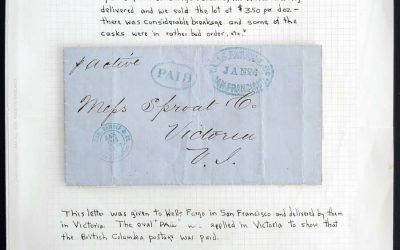 delivered and we sold the lot of $3.50 per doz -
there was considerable breakage and some of the
casks were in rather bad order, etc."
p Active
PAID
JAN 26
SAN FRANCISCO
Mess Sproat & Co.
Victoria
V. I.
This letter was given to Wells Fargo in San Francisco and delivered by them
in Victoria. The oval applied in Victoria to show that
the British Columbia postage was paid.